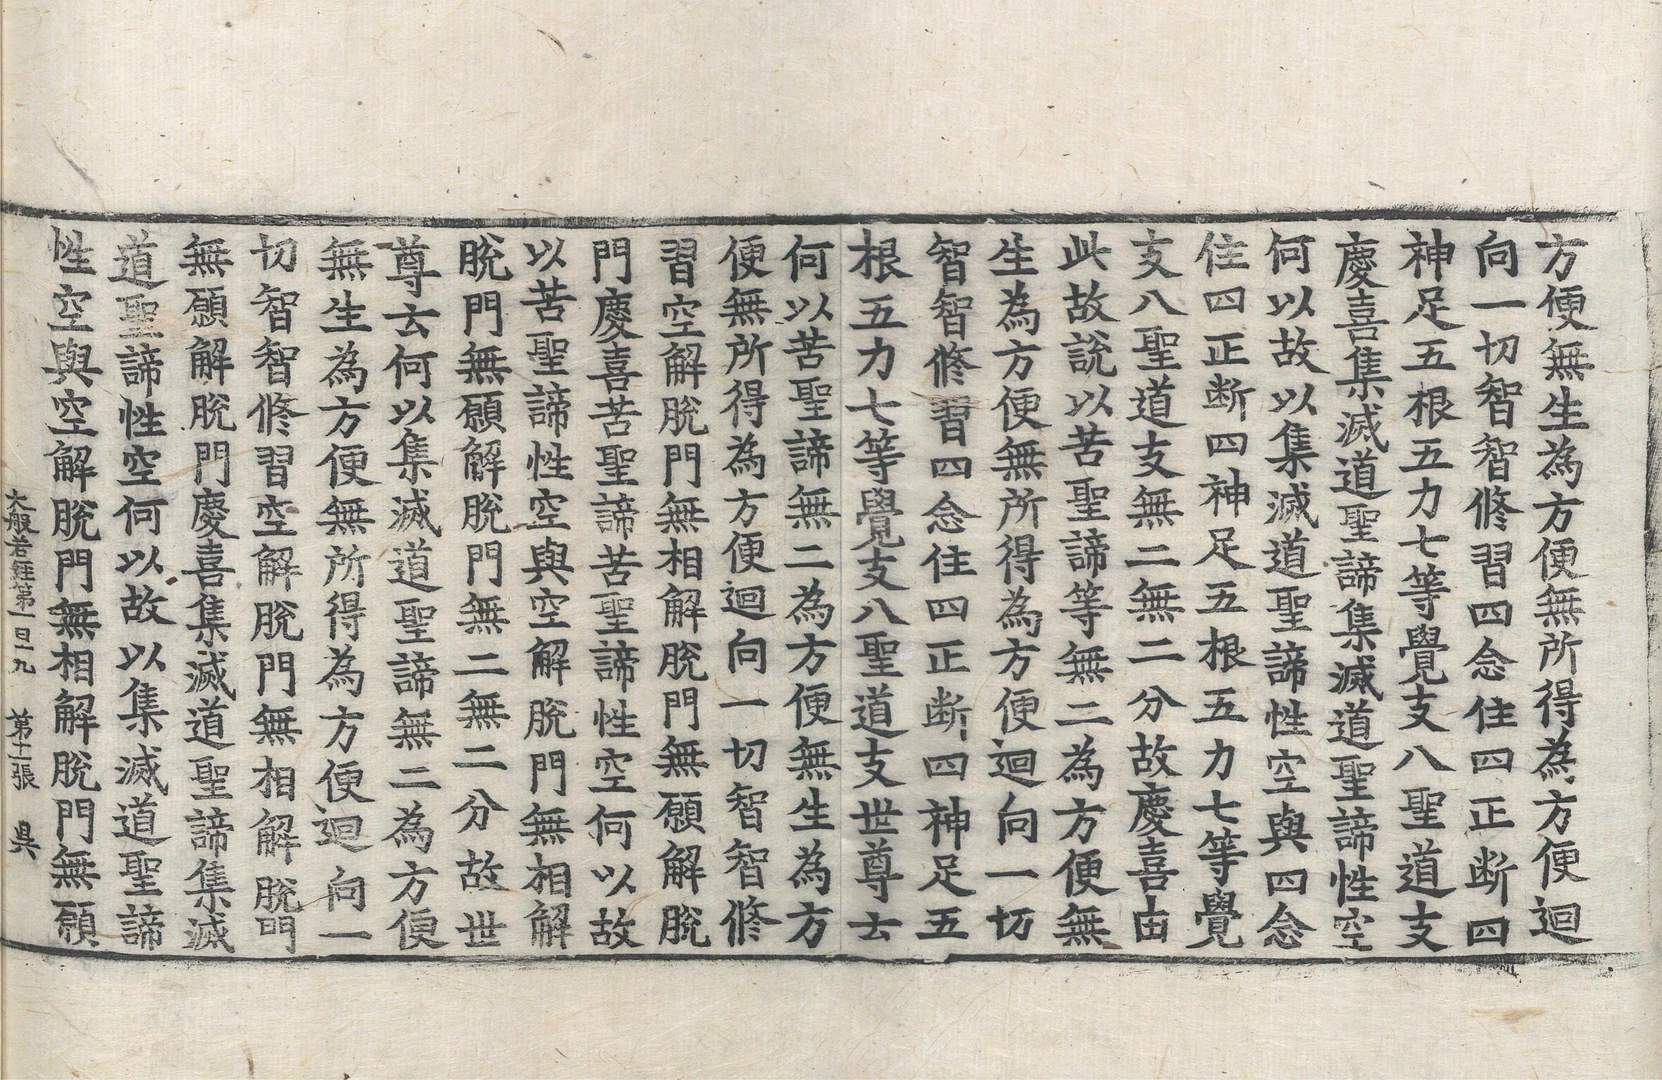 方便無生為方便無所得為方便迴
向一切智智修習四念住四正断四
神足五根五力七等覺支八聖道支
慶喜集滅道聖諦集滅道聖諦性空
何以故以集滅道聖諦性空與四念
住四正断四神足五根五力七等覺
支八聖道支無二無二分故慶喜由
此故說以苦聖諦等無二為方便無
生為方便無所得為方便迴向一切
智智修習四念住四正断四神足五
根五力七等覺支八聖道支世尊云
何以苦聖諦無二為方便無生為方
便無所得為方便迴向一切智智修
習空解脫門無相解脫門無願解脫
門慶喜苦聖諦苦聖諦性空何以故
以苦聖諦性空與空解脫門無相解
脫門無願解脫門無二無二分故世
尊云何以集滅道聖諦無二為方便
無生為方便無所得為方便迴向一
切智智修習空解脫門無相解脫門
無願解脫門慶喜集滅道聖諦集滅
道聖諦性空何以故以集滅道聖諦
性空與空解脫門無相解脫門無願
大般若經第一百一九 第十一張 吳